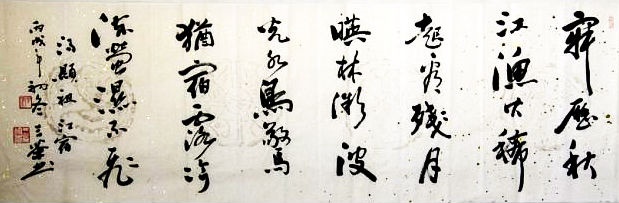 寂歷秋
江漁火稀
起看殘月
暎林微波
光水鳥驚
猶宿露冷
流螢濕不飛
湯顯祖江宿
丙戌年初冬